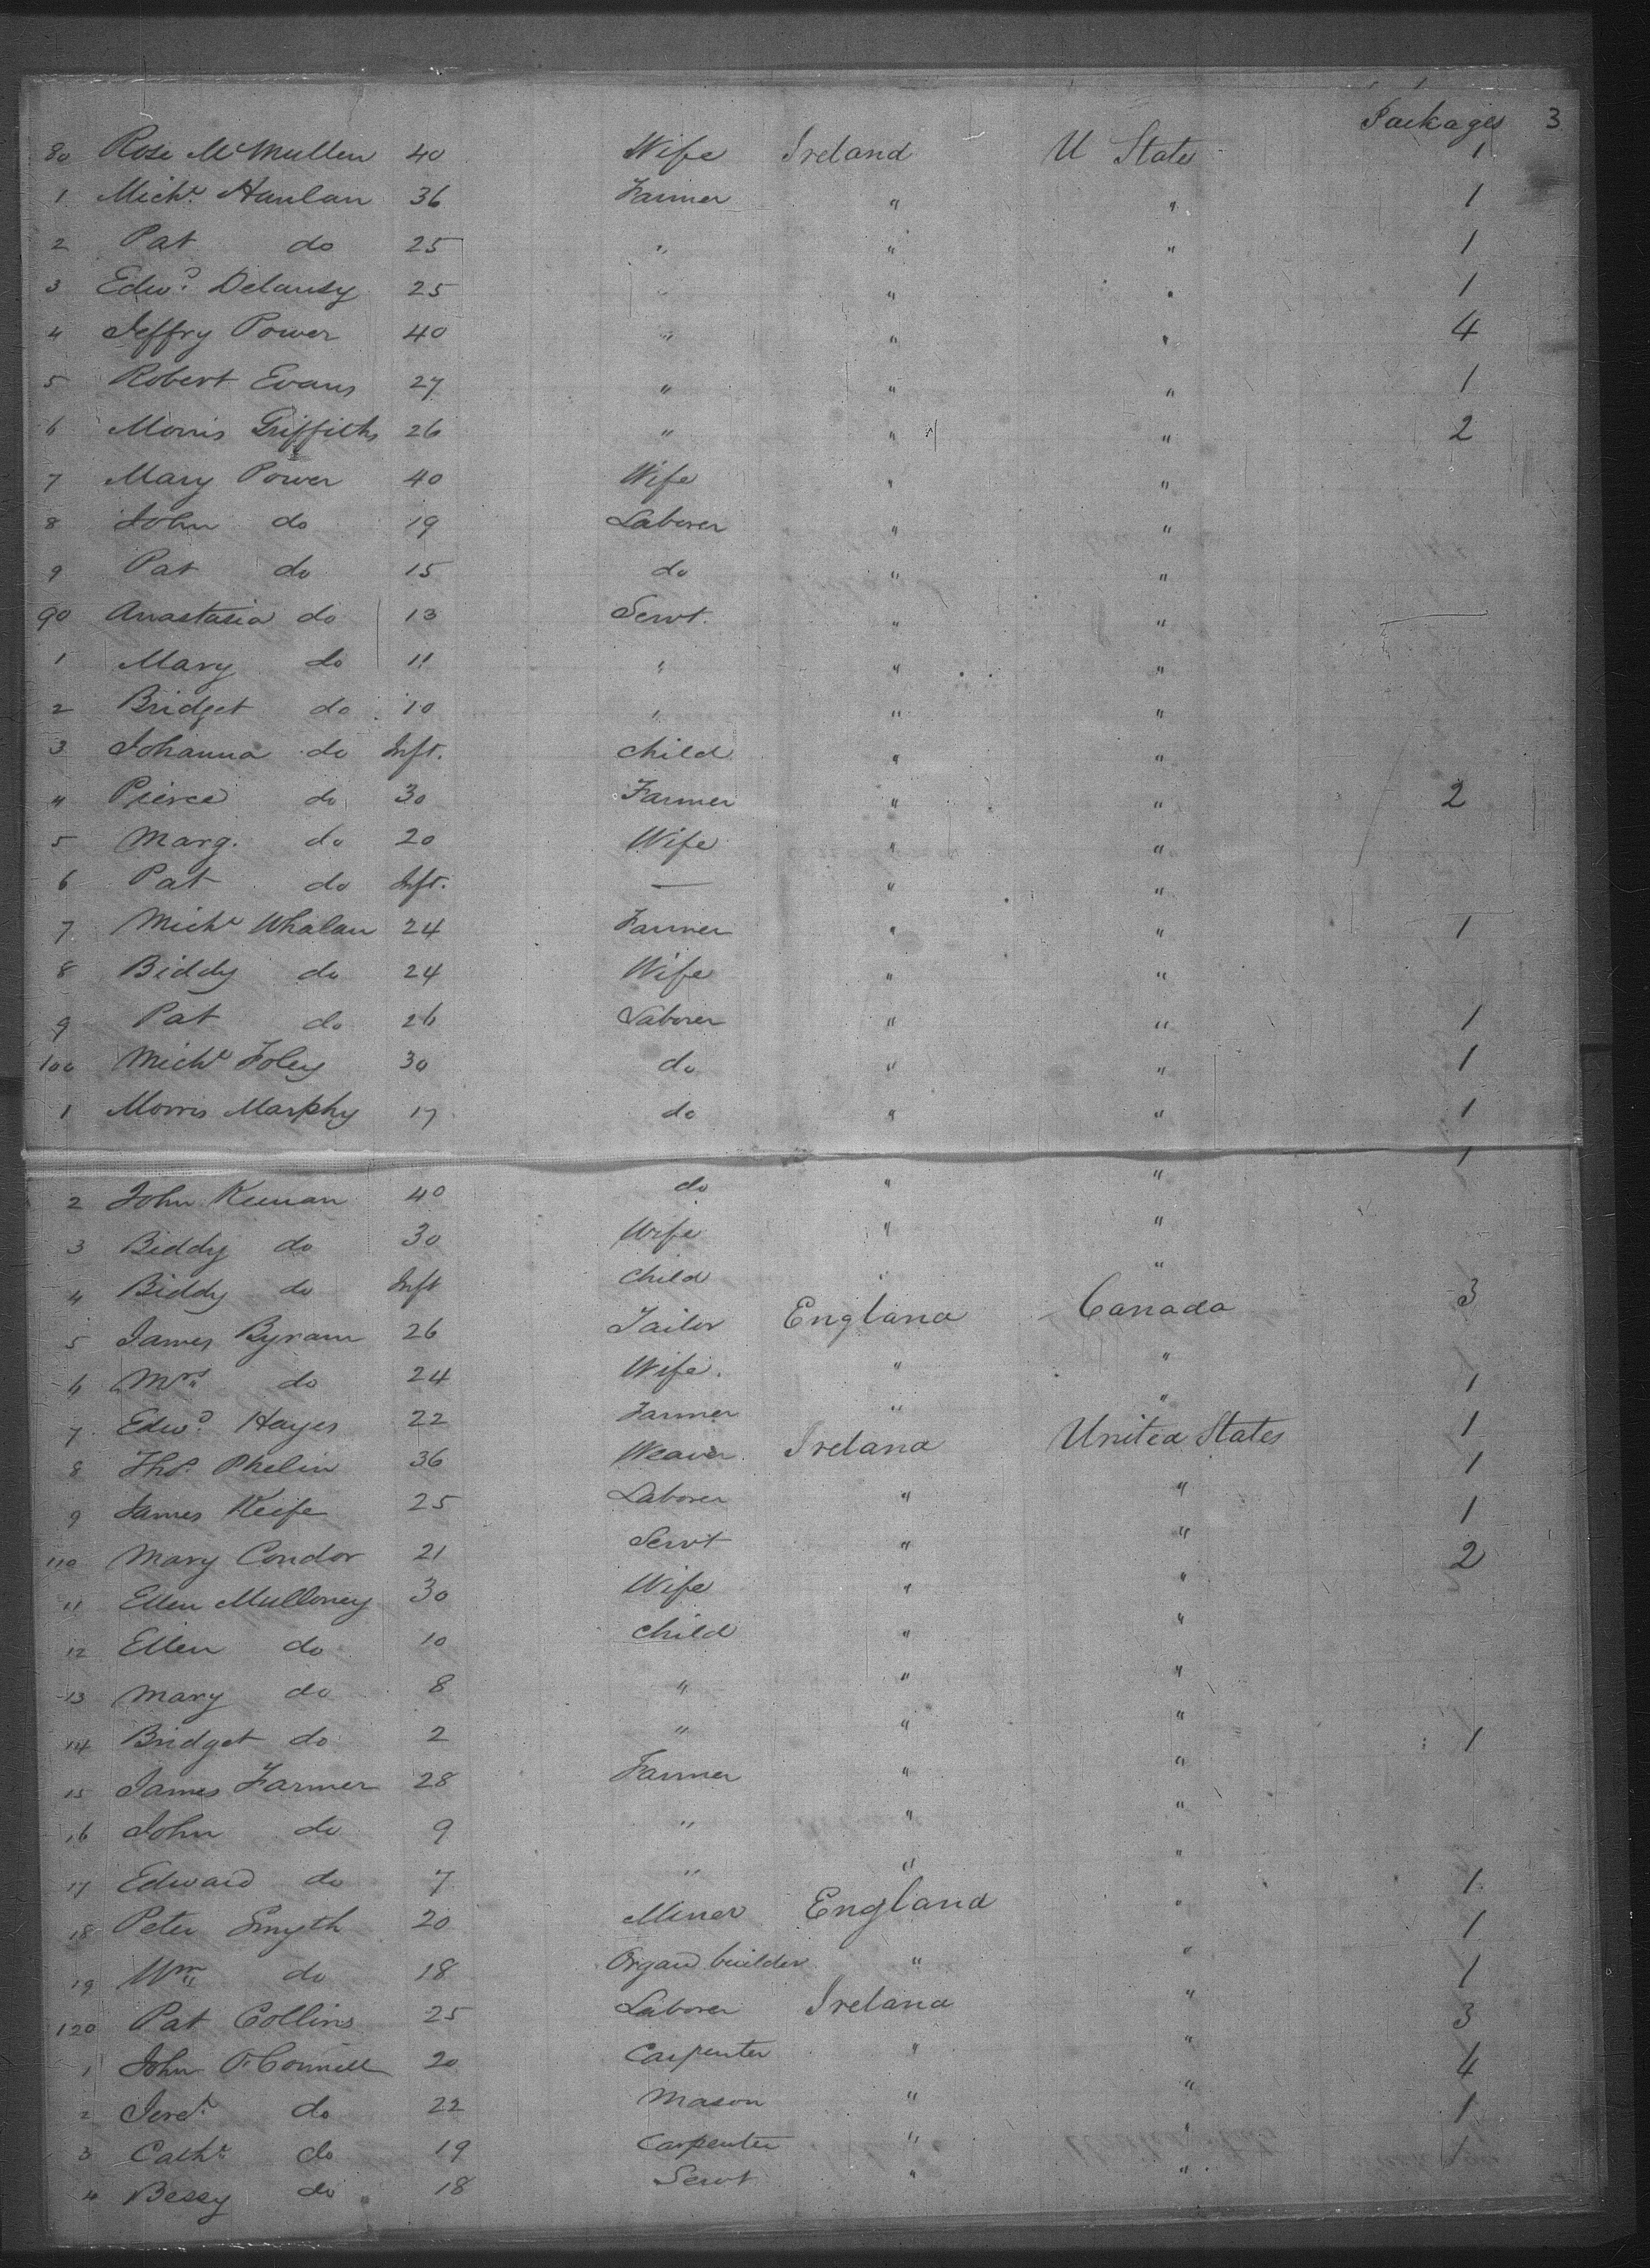 Packages 3
80 Rose McMullen 40 Wife Ireland U State 1
1 Michl Hanlan 36 Farmer " " 1
2 Pat do 25 " " " 1
3 Edwd Delansy 25 " " " 1
4 Jeffry Power 40 " " " 4
5 Robert Evans 27 " " " 1
6 Morris Griffiths 26 " " " 2
7 Mary Power 40 Wife " "
8 John do 19 Laborer " "
9 Pat do 15 do " "
90 Anastasia do 13 Servt. " "
1 Mary do 11 " " "
2 Bridget do 10 " " "
3 Johanna do Inft. child " "
4 Pierce do 30 Farmer " " 2
5 Marg. do 20 Wife " "
6 Pat do Inft. — " "
7 Michl Whalan 24 Farmer " " 1
8 Biddy do 24 Wife " "
9 Pat do 26 Laborer " " 1
100 Michl Foley 30 do " " 1
1 Morris Marphy 17 do " " 1
2 John Keenan 40 do " " 1
3 Biddy do 30 Wife " "
4 Biddy do Inft child " "
5 James Byram 26 Tailor England Canada 3
6 Mrs do 24 Wife. " "
7 Edwd Hayes 22 Farmer " " 1
8 Thos Phelin 36 Weaver Ireland United States 1
9 James Keife 25 Laborer " " 1
110 Mary Condor 21 Servt " " 1
11 Ellen Mulloney 30 Wife " " 2
12 Ellen do 10 child " "
13 Mary do 8 " " "
14 Bridget do 2 " " "
15 James Farmer 28 Farmer " " 1
16 John do 9 " " "
17 Edward do 7 " " "
18 Peter Smyth 20 Miner England " 1
19 Wm do 18 Organ builder " " 1
120 Pat Collins 25 Laborer Ireland " 1
1 John O'Connell 20 Carpenter " " 3
2 Jerd. do 22 Mason " " 4
3 Cathe do 19 Carpenter " " 1
4 Bessy do 18 Servt " " 1